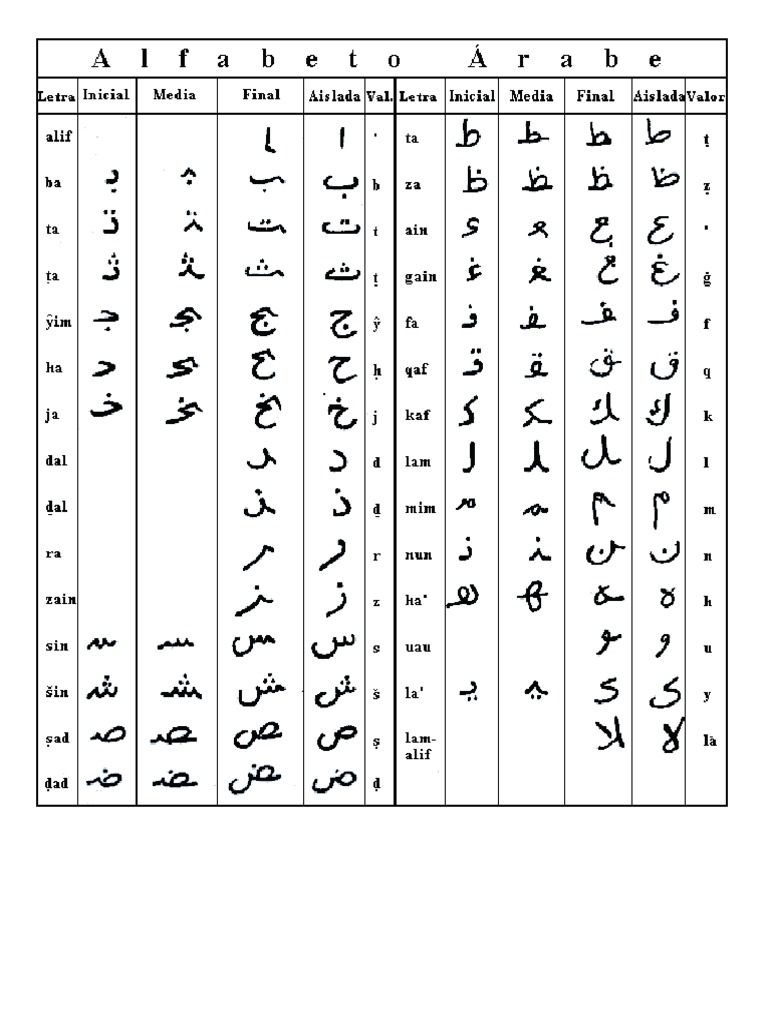 Alfabeto Árabe
Letra Inicial Media Final Aislada Val. Letra Inicial Media Final Aislada Valor
alif ـا ا ' ta طـ ـطـ ـط ط ṭ
ba بـ ـبـ ـب ب b za ظـ ـظـ ـظ ظ ẓ
ta تـ ـتـ ـت ت t ain عـ ـعـ ـع ع '
ṭa ثـ ـثـ ـث ث ṭ gain غـ ـغـ ـغ غ ġ
ŷim جـ ـجـ ـج ج ŷ fa فـ ـفـ ـف ف f
ha حـ ـحـ ـح ح ḥ qaf قـ ـقـ ـق ق q
ja خـ ـخـ ـخ خ j kaf كـ ـكـ ـك ك k
dal ـد د d lam لـ ـلـ ـل ل l
ḏal ـذ ذ ḏ mim مـ ـمـ ـم م m
ra ـر ر r nun نـ ـنـ ـن ن n
zain ـز ز z ha' هـ ـهـ ـه ه h
sin سـ ـسـ ـس س s uau ـو و u
šin شـ ـشـ ـش ش š la' يـ ـيـ ـى ى y
ṣad صـ ـصـ ـص ص ṣ lam- ـلا لا la
alif
ḍad ضـ ـضـ ـض ض ḍ